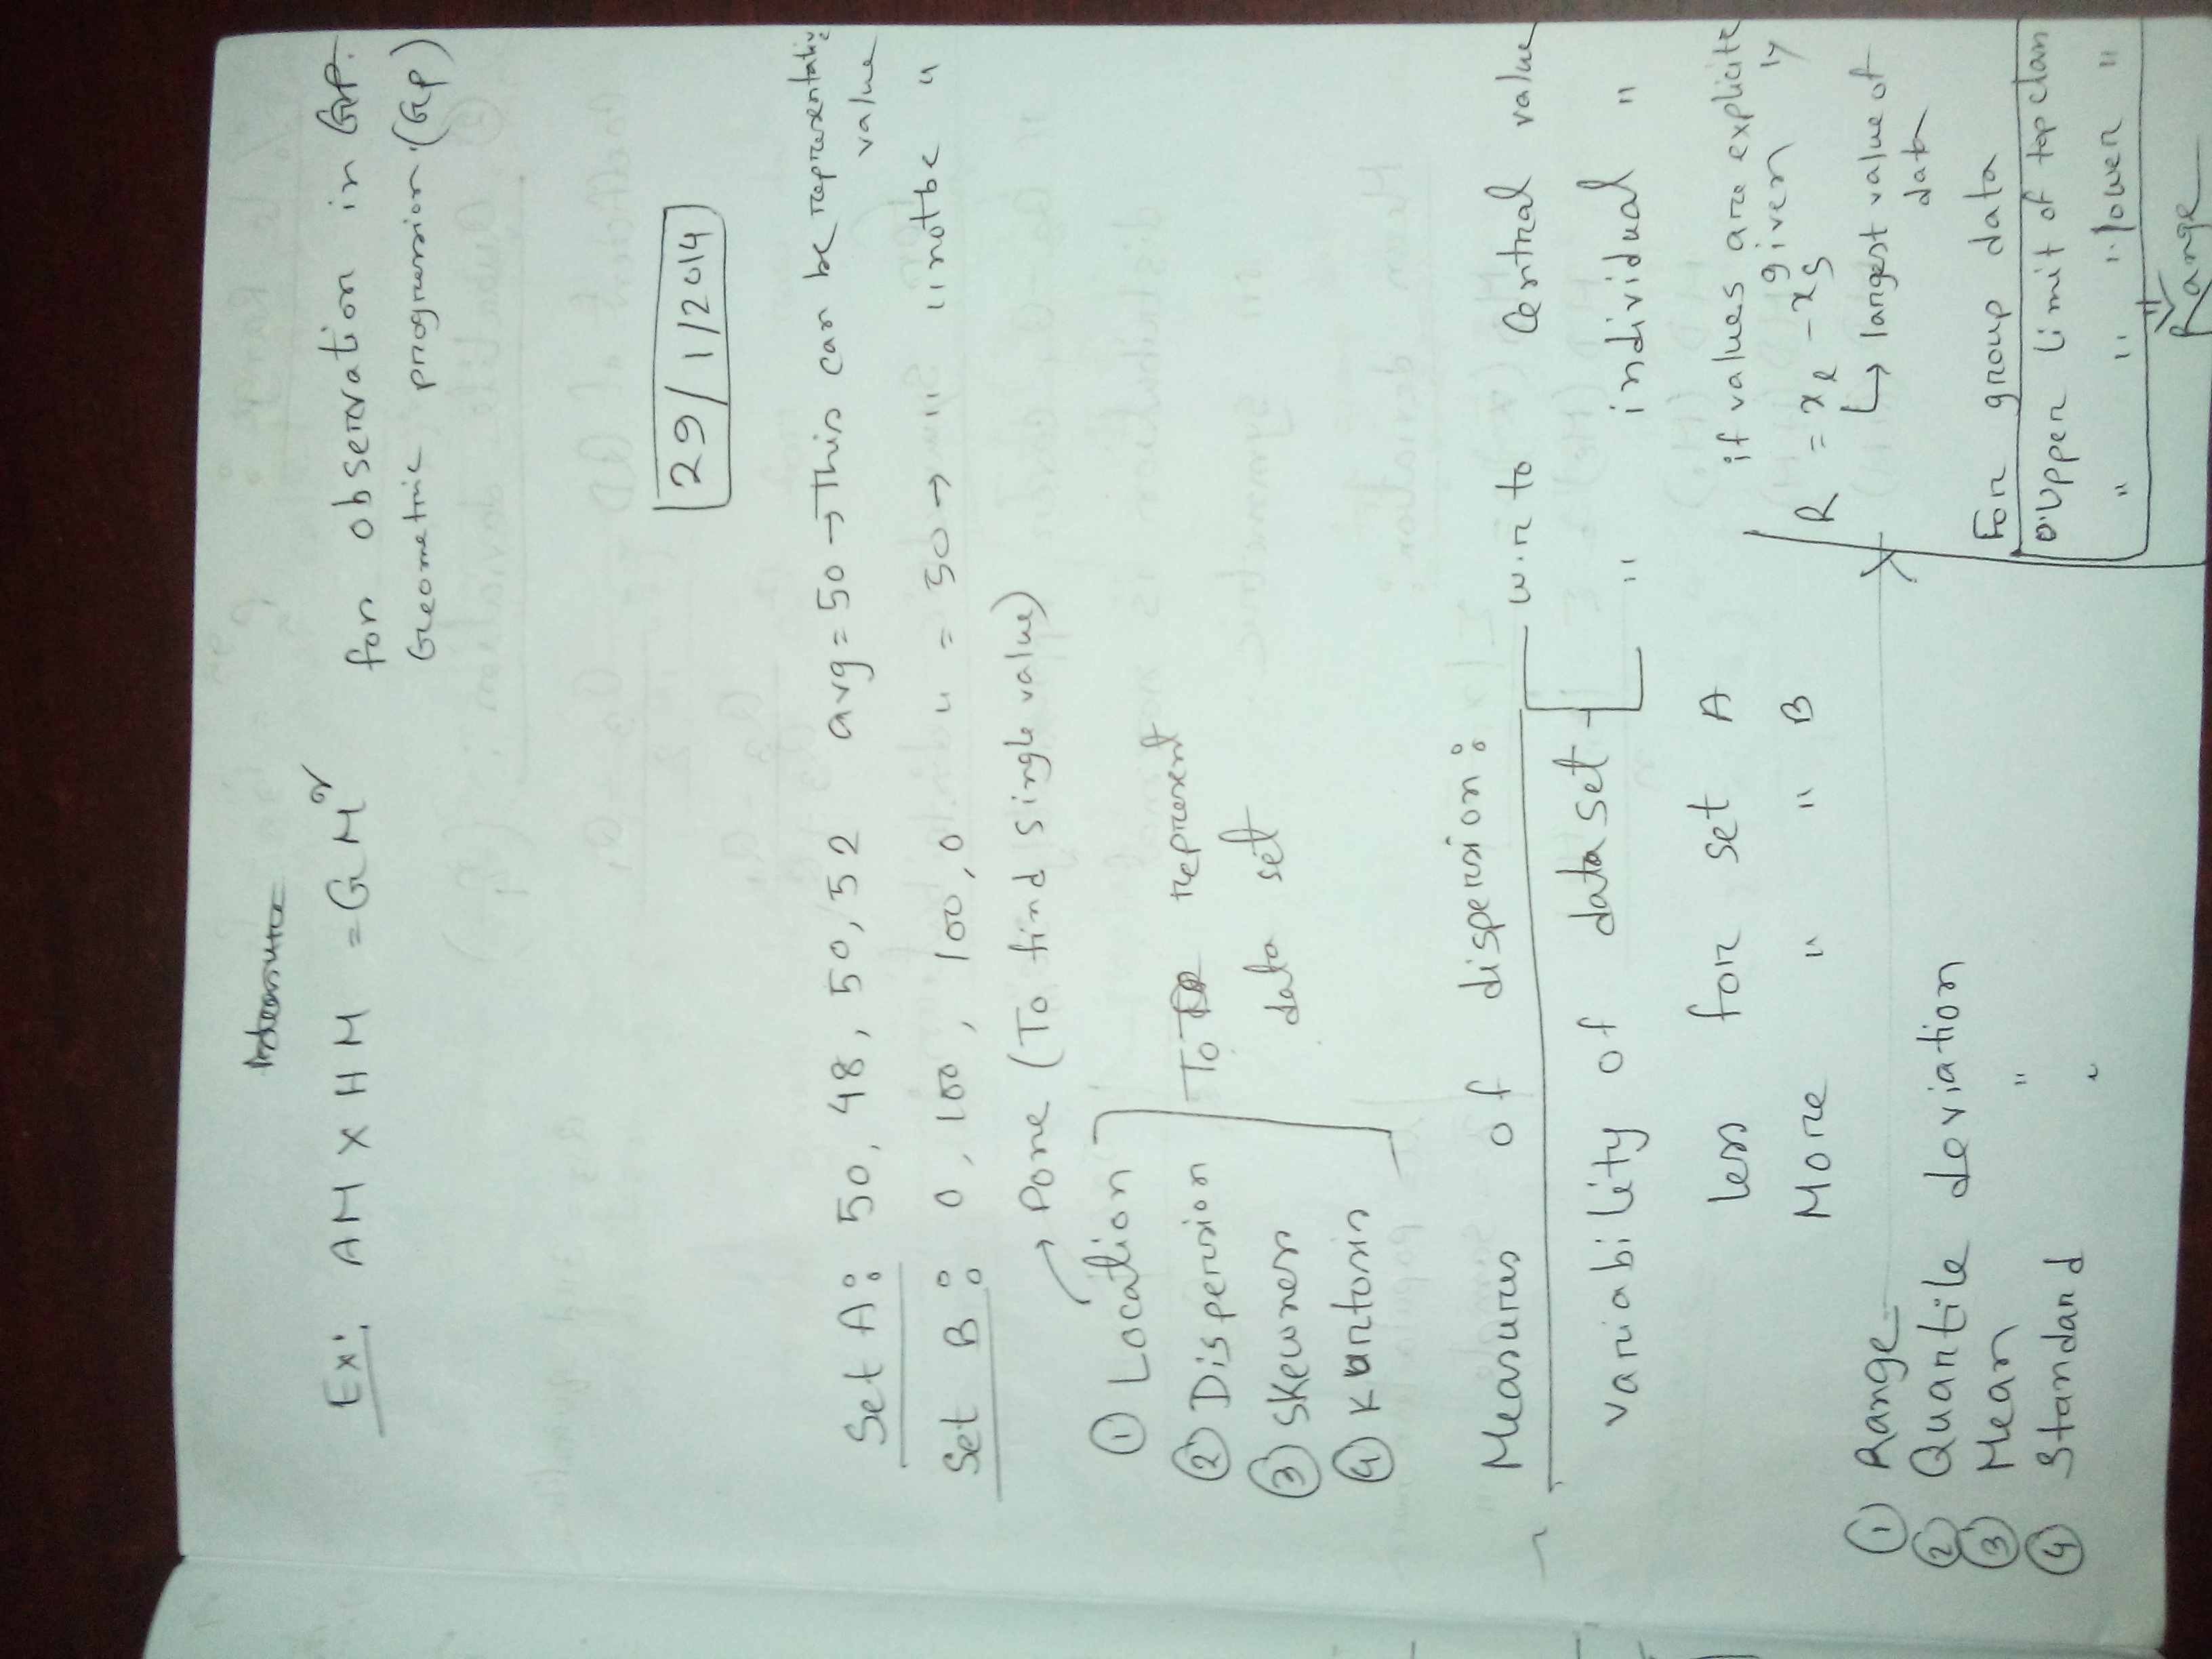 Ex: AM x HM = GM² for observation in GP.
Geometric progression (GP)
29/1/2014
Set A: 50, 48, 50, 52 avg = 50 → This can be representative value
Set B: 0, 100, 100, 0 " = 50 → " " not be "
→ Done (To find single value)
① Location
② Dispersion To represent
③ Skewness data set
④ Kurtosis
Measures of dispersion:
Variability of data set
w.r to Central value
" individual "
less for set A
More " " B
① Range
② Quartile deviation
③ Mean "
④ Standard "
if values are explicitely given
R = xₗ - xₛ
↳ largest value of data
For group data
Upper limit of top class
" " " lower "
Range